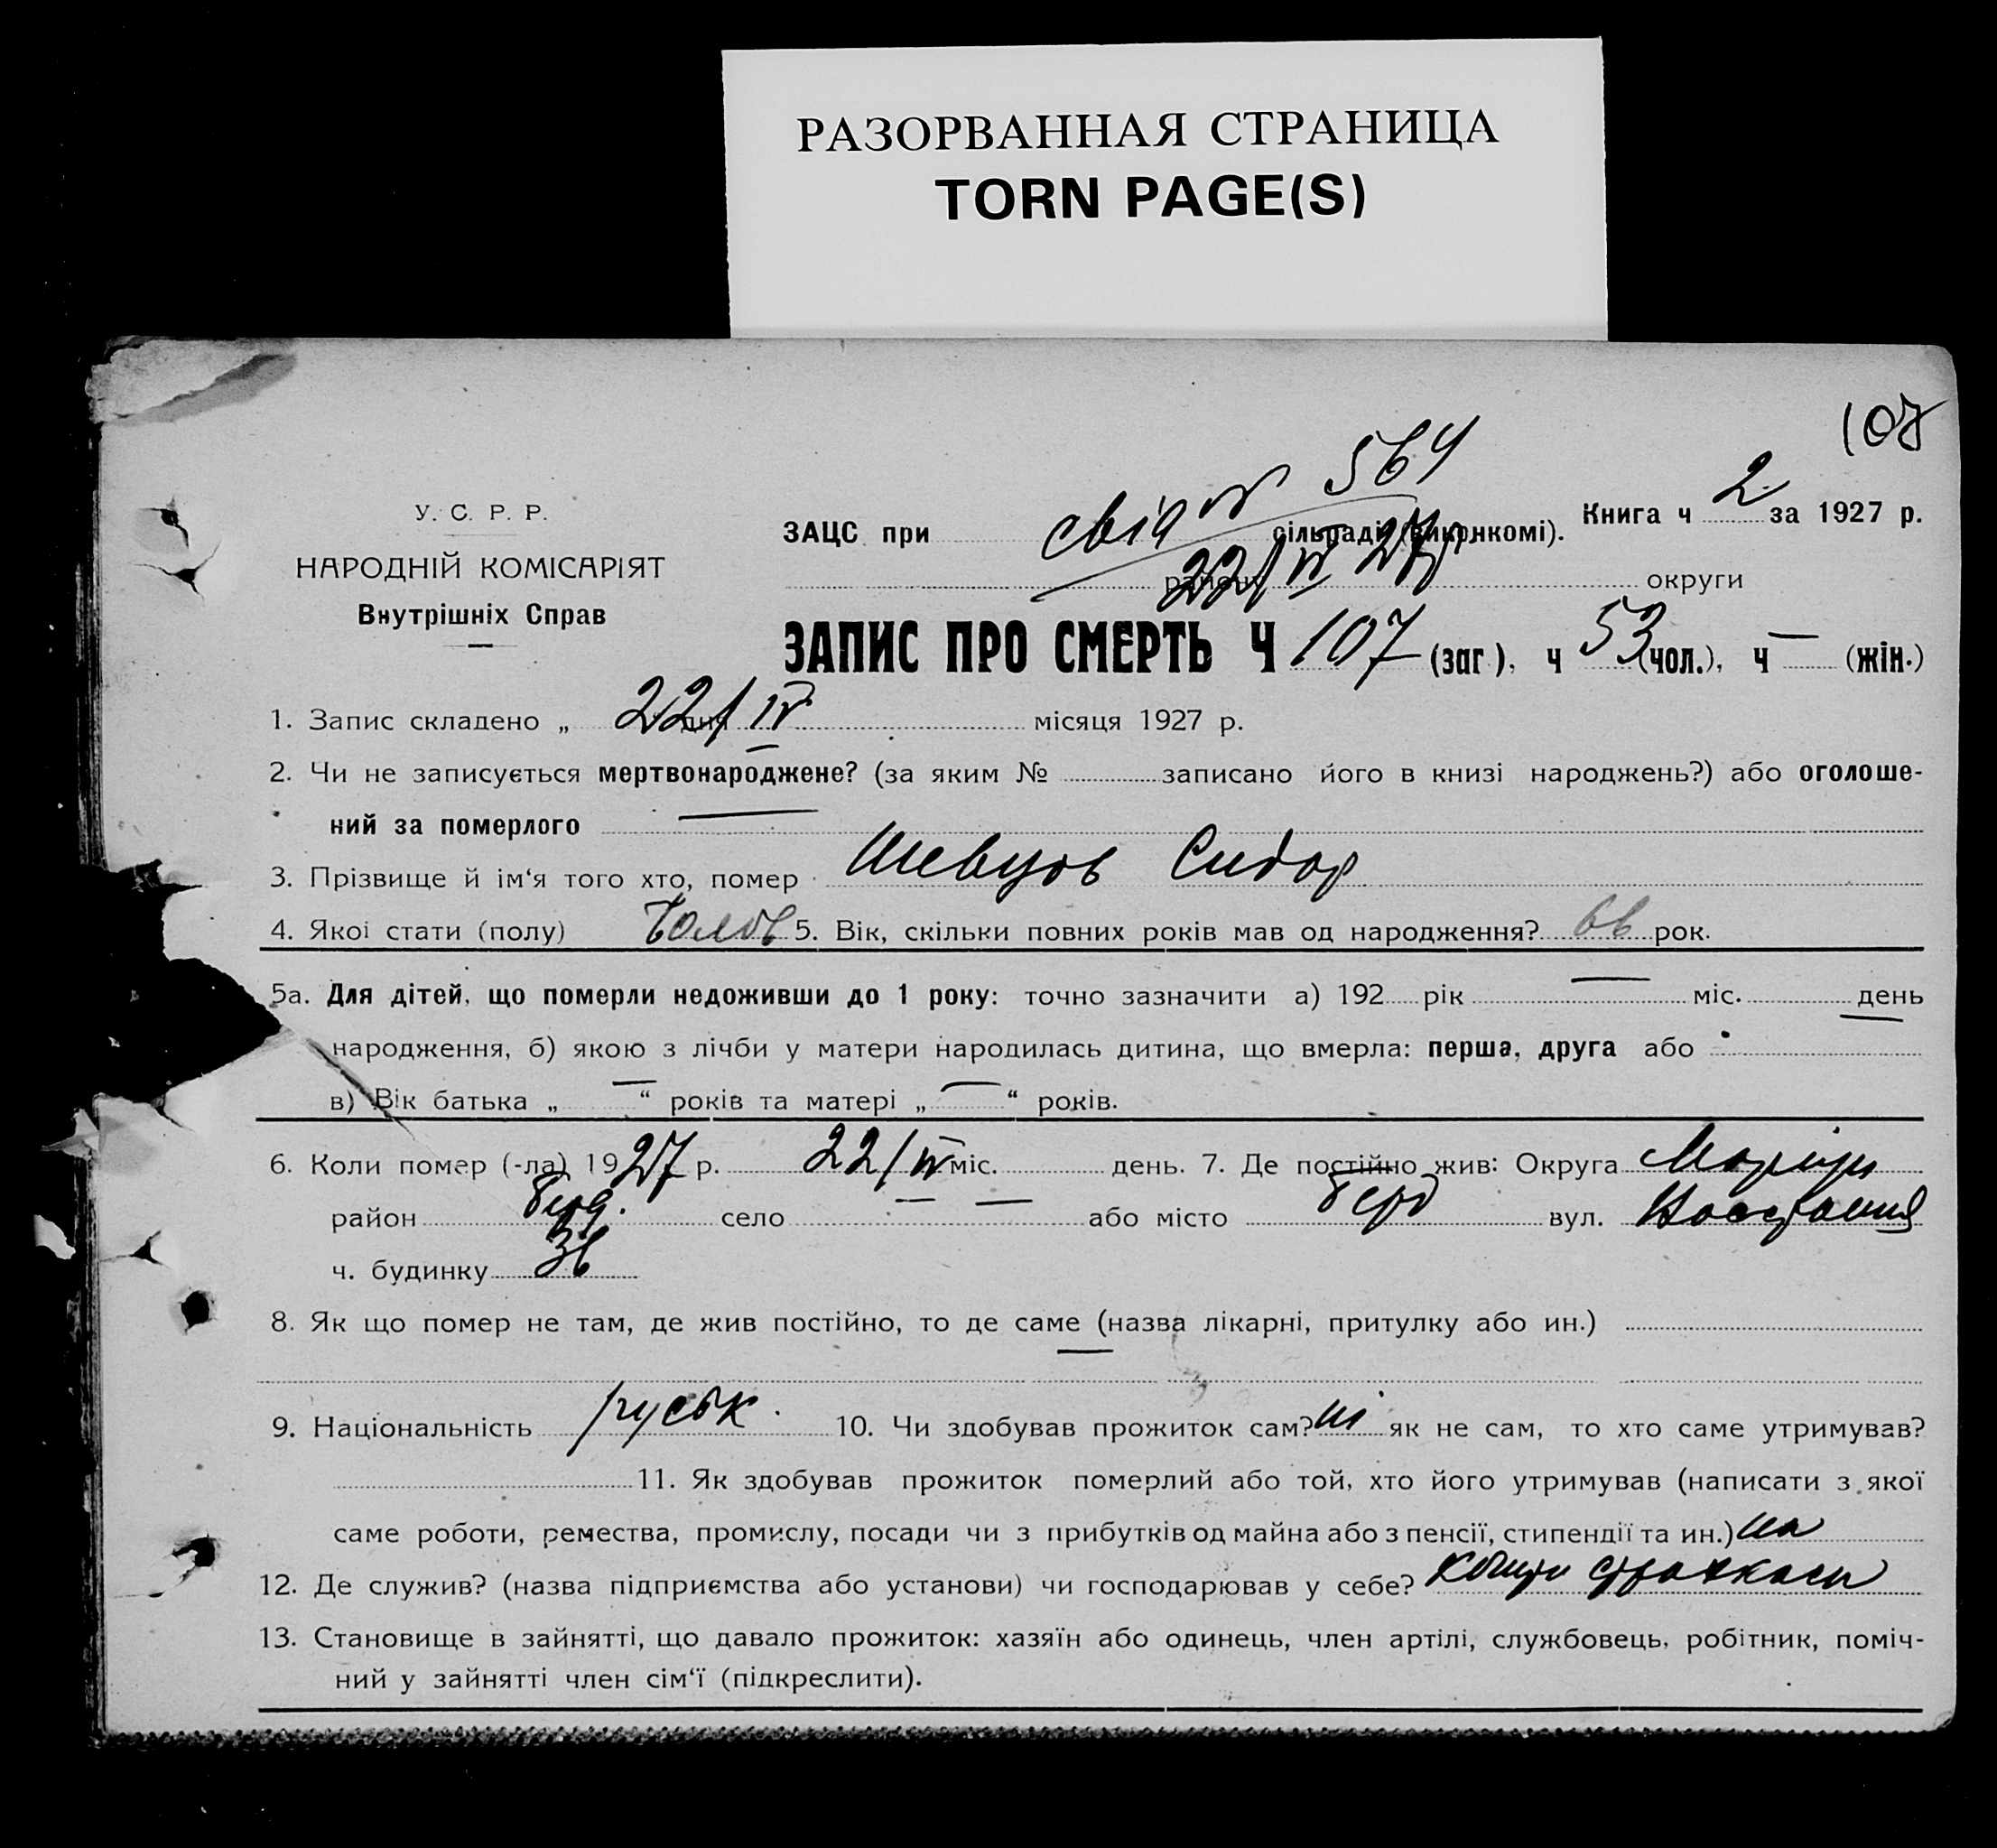 РАЗОРВАННАЯ СТРАНИЦА
TORN PAGE(S)
107
У. С. Р. Р.
НАРОДНІЙ КОМІСАРІЯТ
Внутрішніх Справ
564
Книга ч 2 за 1927 р.
ЗАЦС при сільраді (виконкомі).
22/IV 27р. району округи
ЗАПИС ПРО СМЕРТЬ Ч 107 (заг.), ч 53 (чол.), ч — (жін.)
1. Запис складено „ 22/IV дня місяця 1927 р.
2. Чи не записується мертвонароджене? (за яким № записано його в книзі народжень?) або оголоше-
ний за померлого —
3. Прізвище й ім‘я того хто, помер Шевцов Сидор
4. Якої стати (полу) Чолов 5. Вік, скільки повних років мав од народження? 66 рок.
5а. Для дітей, що померли недоживши до 1 року: точно зазначити а) 192 рік — міс. день —
народження, б) якою з лічби у матери народилась дитина, що вмерла: перша, друга або
в) Вік батька „ — “ років та матері „ — “ років.
6. Коли помер (-ла) 1927 р. 22/IV міс. день. 7. Де постійно жив: Округа Маріуп
район Берд. село — — або місто Берд вул. Восстания
ч. будинку 36
8. Як що помер не там, де жив постійно, то де саме (назва лікарні, притулку або ин.)
—
9. Національність руськ. 10. Чи здобував прожиток сам? ні як не сам, то хто саме утримував?
11. Як здобував прожиток померлий або той, хто його утримував (написати з якої
саме роботи, ремества, промислу, посади чи з прибутків од майна або з пенсії, стипендії та ин.) на
12. Де служив? (назва підприємства або установи) чи господарював у себе? кошти страхкаси
13. Становище в зайнятті, що давало прожиток: хазяїн або одинець, член артілі, службовець, робітник, поміч-
ний у зайнятті член сім‘ї (підкреслити).